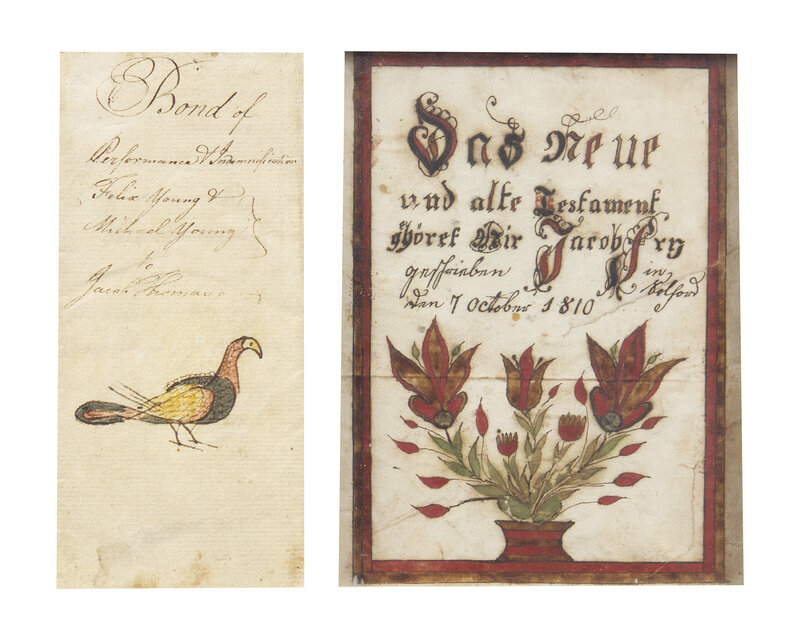 Bond of
Performance & Indemnification
Felix Young &
Michael Young
to
Jacob Thomas
Das Neue
und alte Testament
ghöret Mir Jacob Fry
geschrieben in
den 7 October 1810